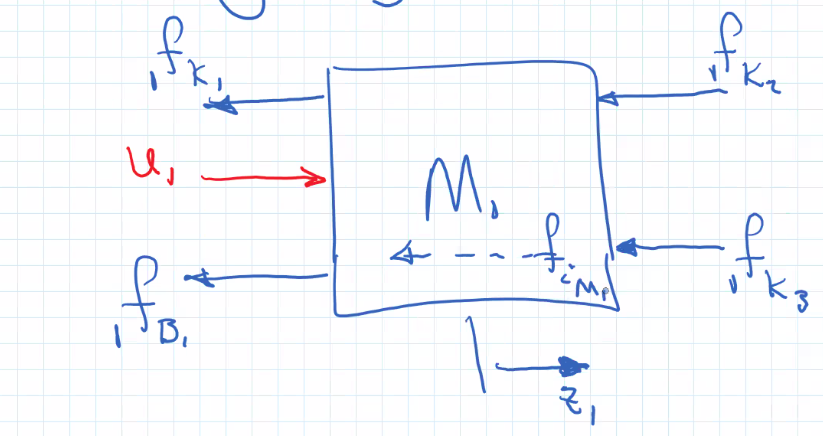 ₁f_K₁
₁f_K₂
u₁
M₁
f_iM₁
₁f_K₃
₁f_B₁
z₁